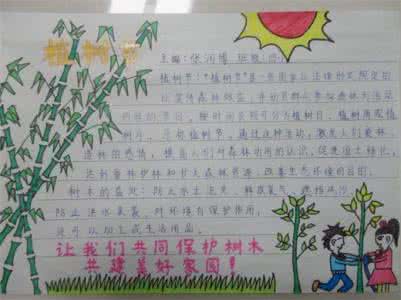 植树节
主编：张润博 班级：四
植树节："植树节"是一些国家以法律形式规定的
以宣传森林效益，并动员群众参加造林为活动
内容的节日，按时间长短可分为植树日、植树周或植
树月。通过这种活动，激发人们爱林、
造林的感情，提高人们对森林功用的认识，促进国土绿化，
达到爱林护林和扩大森林资源、改善生态环境的目的。
树木的益处：防止水土流失，
防止洪水，对环境有保护作用，
还可以加工成生活用品。
让我们共同保护树木
共建美好家园！